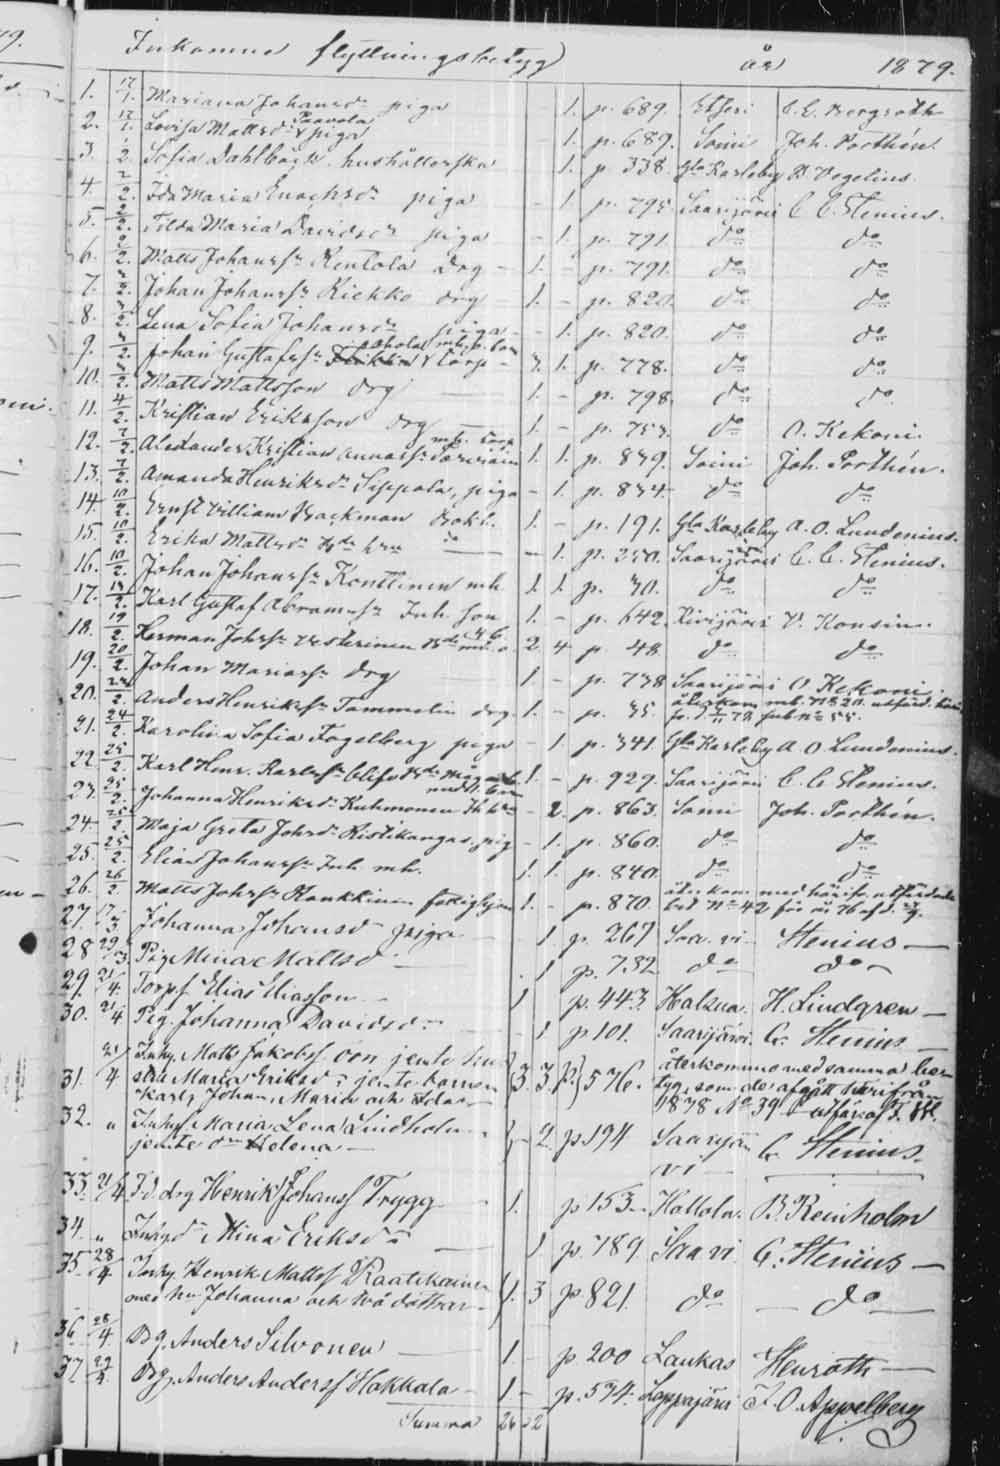 Inkomne flyttningsbetyg år 1879.
1. 17/1. Mariana Johansdr piga - 1. p. 689. Etseri C. E. Bergroth
2. 17/1. Lovisa Mattsdr Paavola piga 1. p. 689. Soini Joh. Porthén.
3. 1/2. Sofia Dahlback hushållerska 1. p. 338. Gla Karleby A. Vegelius.
4. 2/2. Ida Maria Enochsdr piga - 1. p. 795 Saarijärvi C. C. Stenius.
5. 2/2. Tilda Maria Davidsdr piga - 1. p. 791. do do
6. 2/2. Matts Johanssn Rentola drg - 1. - p. 791. do do
7. Johan Johanssn Kiekko drg 1. - p. 820. do do
8. Lena Sofia Johansdr piga - 1. p. 820. do do
9. Johan Gustafssn Torp - 1. p. 778. do do
10. Matts Mattsson drg 1. - p. 798. do do.
11. 4/2. Kristian Eriksson drg 1. - p. 757. do O. Kekoni.
12. 7/2. Alexander Kristian Annassn 1. 1. p. 839. Soini Joh. Porthén.
13. 7/2. Amanda Henriksdr Sippola, piga - 1. p. 834. do do
14. 10/2. Ernst William Backman Bokh. 1. - p. 191. Gla Karleby A. O. Lundenius.
15. 10/2. Erika Mattsdr - 1. p. 250. Saarijärvi C. C. Stenius.
16. 10/2. Johan Johanssn Konttinen mh 1. 1. p. 30. do do
17. 14/2. Karl Gustaf Abramssn Inh. son 1. - p. 642. Kivijärvi V. Konsin.
18. 19/2. Herman Johssn Vesterinen 2 4 p. 48. do do
19. 20/2. Johan Mariassn drg 1. - p. 738 Saarijärvi O. Kekoni.
20. Anders Henrikssn Tammelin drg. 1. - p. 35. återkom. mb. No 20. utfärd.
21. 24/2. Karolina Sofia Fogelberg piga - 1. p. 341. Gla Karleby A. O. Lundenius.
22. 25/2. Karl Henr. Karlssn 1. - p. 929. Saarijärvi C. C. Stenius.
23. 25/2. Johanna Henriksdr Kuhmonen - 2. p. 863. Soini Joh. Porthén.
24. 25/2. Maja Greta Johsdr Ristikangas, pig - 1. p. 860. do do
25. 25/2. Elias Johanssn Inh. mh. 1. 1. p. 840. do do
26. 26/2. Matts Johssn Honkkinen fattighjon 1. - p. 870. återkom. med härifr. utfärdade
bet. No 42 för år 76
27. Johanna Johansd piga 1 p. 267 Saa. vi Stenius
28 29/3 Pig. Mina Mattsd 1 p. 732 do do
29. 21/4. Torpf. Elias Eliasson 1 p. 443 Halsua. H. Lindgren
30. 21/4 Pig. Johanna Davidsd - 1 p 101. Saarijärvi. C. Stenius
31. 21/4 Inhy. Matts Jakobss. Oon jemte hu-
stru Maria Eriksd. jemte barnen 3. 3. p. 576. återkommo med samma bet
Karl, Johan, Maria och Ida tyg, som de afgått härifrån
1878 No 39
32. " Inhys. Maria Lena Lindholm - 2 p 194 Saarijär C. Stenius.
jemte dr Helena vi
33. 21/4 Fd. drg Henrik Johanss Trygg 1. p 153 Hollola. B. Reinholm
34. " Inhysd. Mina Eriksd 1 p. 789 Saa vi C. Stenius
35 28/4 Inhy. Henrik Mattss Raatikainen
med hu Johanna och två döttrar 1. 3 p 821. do do
36 28/4 Dg. Anders Silvonen 1. - p 200 Laukas Stenroth
37 29/4. Dg. Anders Anderss Hakkala 1 - p. 594. Lappajärvi F. O. Appelberg
Summa 26 32